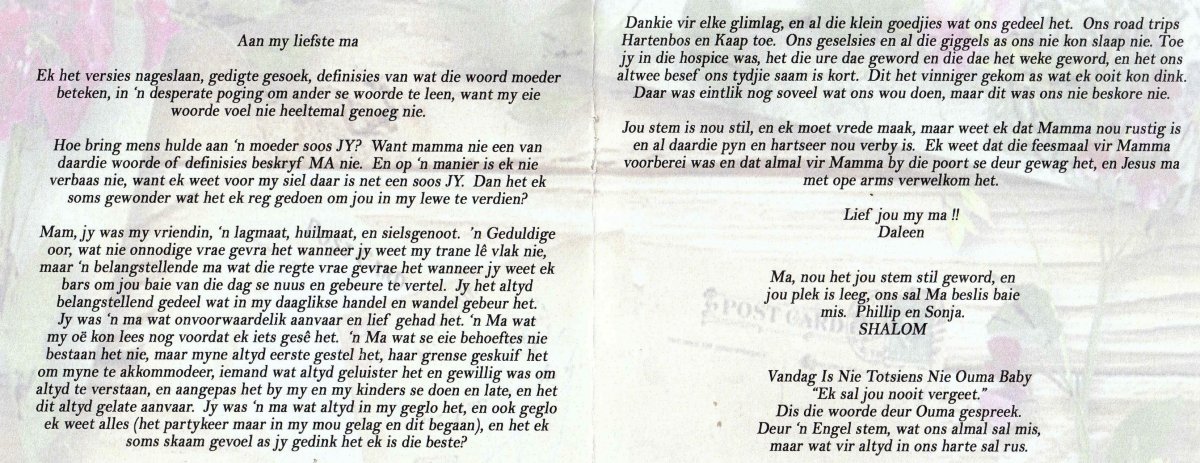 Aan my liefste ma
Ek het versies nageslaan, gedigte gesoek, definisies van wat die woord moeder
beteken, in 'n desperate poging om ander se woorde te leen, want my eie
woorde voel nie heeltemal genoeg nie.
Hoe bring mens hulde aan 'n moeder soos JY? Want mamma nie een van
daardie woorde of definisies beskryf MA nie. En op 'n manier is ek nie
verbaas nie, want ek weet voor my siel daar is net een soos JY. Dan het ek
soms gewonder wat het ek reg gedoen om jou in my lewe te verdien?
Mam, jy was my vriendin, 'n lagmaat, huilmaat, en sielsgenoot. 'n Geduldige
oor, wat nie onnodige vrae gevra het wanneer jy weet my trane lê vlak nie,
maar 'n belangstellende ma wat die regte vrae gevrae het wanneer jy weet ek
bars om jou baie van die dag se nuus en gebeure te vertel. Jy het altyd
belangstellend gedeel wat in my daaglikse handel en wandel gebeur het.
Jy was 'n ma wat onvoorwaardelik aanvaar en lief gehad het. 'n Ma wat
my oë kon lees nog voordat ek iets gesê het. 'n Ma wat se eie behoeftes nie
bestaan het nie, maar myne altyd eerste gestel het, haar grense geskuif het
om myne te akkommodeer, iemand wat altyd geluister het en gewillig was om
altyd te verstaan, en aangepas het by my en my kinders se doen en late, en het
dit altyd gelate aanvaar. Jy was 'n ma wat altyd in my geglo het, en ook geglo
ek weet alles (het partykeer maar in my mou gelag en dit begaan), en het ek
soms skaam gevoel as jy gedink het ek is die beste?
Dankie vir elke glimlag, en al die klein goedjies wat ons gedeel het. Ons road trips
Hartenbos en Kaap toe. Ons geselsies en al die giggels as ons nie kon slaap nie. Toe
jy in die hospice was, het die ure dae geword en die dae het weke geword, en het ons
altwee besef ons tydjie saam is kort. Dit het vinniger gekom as wat ek ooit kon dink.
Daar was eintlik nog soveel wat ons wou doen, maar dit was ons nie beskore nie.
Jou stem is nou stil, en ek moet vrede maak, maar weet ek dat Mamma nou rustig is
en al daardie pyn en hartseer nou verby is. Ek weet dat die feesmaal vir Mamma
voorberei was en dat almal vir Mamma by die poort se deur gewag het, en Jesus ma
met ope arms verwelkom het.
Lief jou my ma !!
Daleen
Ma, nou het jou stem stil geword, en
jou plek is leeg, ons sal Ma beslis baie
mis. Phillip en Sonja.
SHALOM
POST CARD
Vandag Is Nie Totsiens Nie Ouma Baby
"Ek sal jou nooit vergeet."
Dis die woorde deur Ouma gespreek.
Deur 'n Engel stem, wat ons almal sal mis,
maar wat vir altyd in ons harte sal rus.